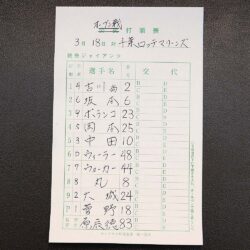 オープン戦
打順票
3月18日 対 千葉ロッテマリーンズ
読売ジャイアンツ
選手名 交代
1 4 吉川尚 2
2 6 坂本 6
3 9 ポランコ 23
4 5 岡本 25
5 3 中田 10
6 D ウィーラー 48
7 7 ウォーカー 44
8 8 丸 8
9 2 大城 24
P 1 菅野 18
原辰徳 83